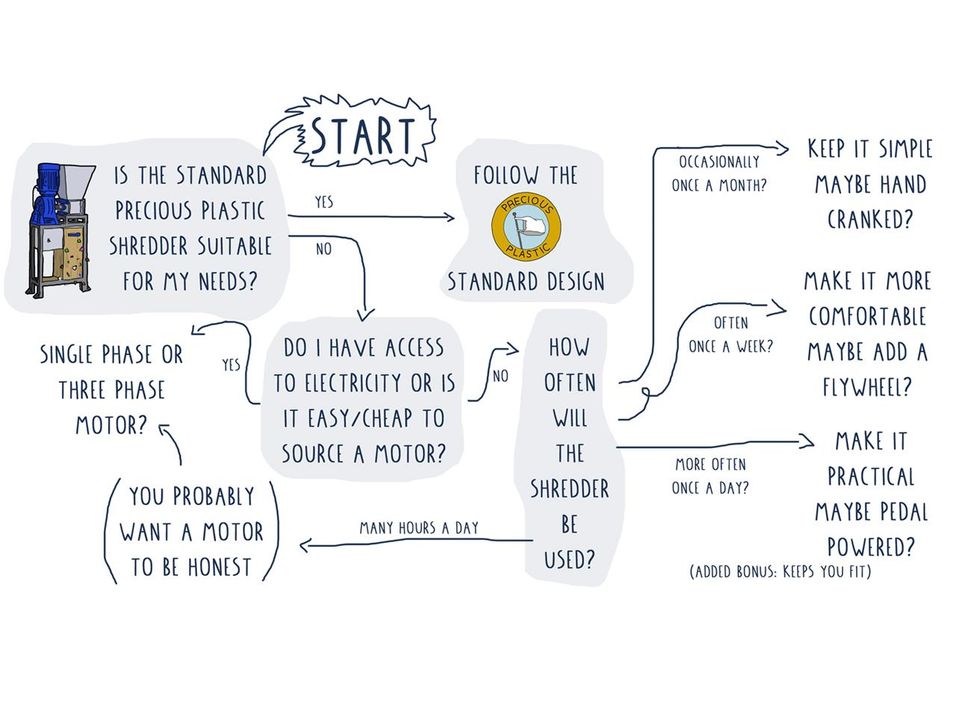 START
IS THE STANDARD
PRECIOUS PLASTIC
SHREDDER SUITABLE
FOR MY NEEDS?
YES
NO
FOLLOW THE
PRECIOUS
PLASTIC
STANDARD DESIGN
DO I HAVE ACCESS
TO ELECTRICITY OR IS
IT EASY/CHEAP TO
SOURCE A MOTOR?
YES
NO
SINGLE PHASE OR
THREE PHASE
MOTOR?
(YOU PROBABLY
WANT A MOTOR
TO BE HONEST)
HOW
OFTEN
WILL
THE
SHREDDER
BE
USED?
MANY HOURS A DAY
OCCASIONALLY
ONCE A MONTH?
KEEP IT SIMPLE
MAYBE HAND
CRANKED?
OFTEN
ONCE A WEEK?
MAKE IT MORE
COMFORTABLE
MAYBE ADD A
FLYWHEEL?
MORE OFTEN
ONCE A DAY?
MAKE IT
PRACTICAL
MAYBE PEDAL
POWERED?
(ADDED BONUS: KEEPS YOU FIT)